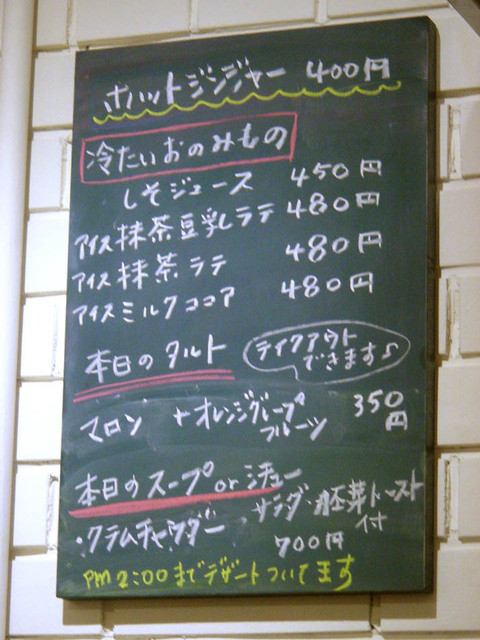 ホットジンジャー 400円
冷たいおのみもの
しそジュース 450円
アイス抹茶豆乳ラテ 480円
アイス抹茶ラテ 480円
アイスミルクココア 480円
本日のタルト テイクアウト
できます♪
マロン + オレンジグレープ 350
フルーツ 円
本日のスープorシチュー
・クラムチャウダー サラダ・胚芽トースト
付
700円
PM2:00までデザートついてます